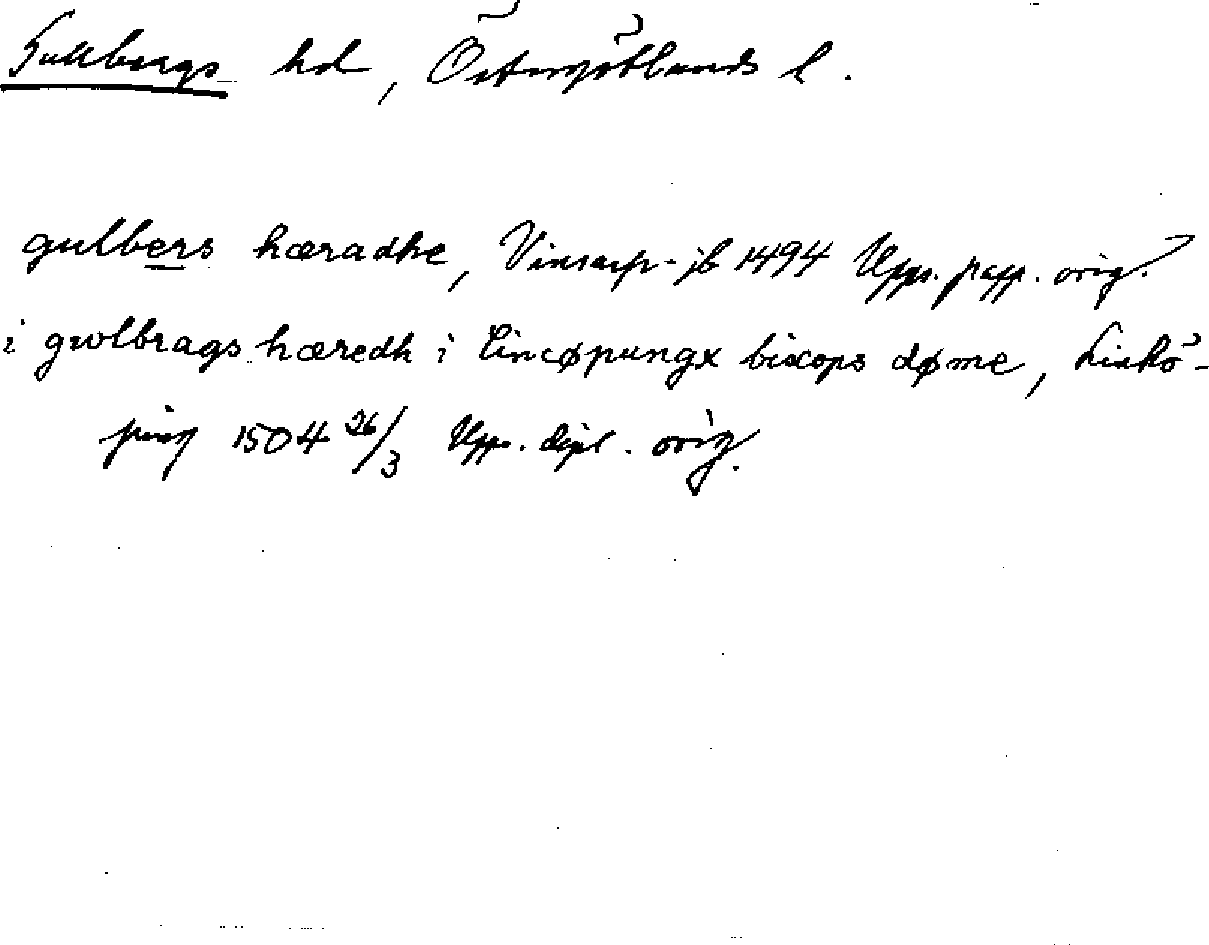 Gullbergs hd, Östergötlands l.
gulbers hæradhe, Vinsarp-jb 1494 Upps. papp. orig.
i gwlbrags hæredh i lincøpungx bixops døme, Linkö-
ping 1504 26/3 Upps. dipl. orig.